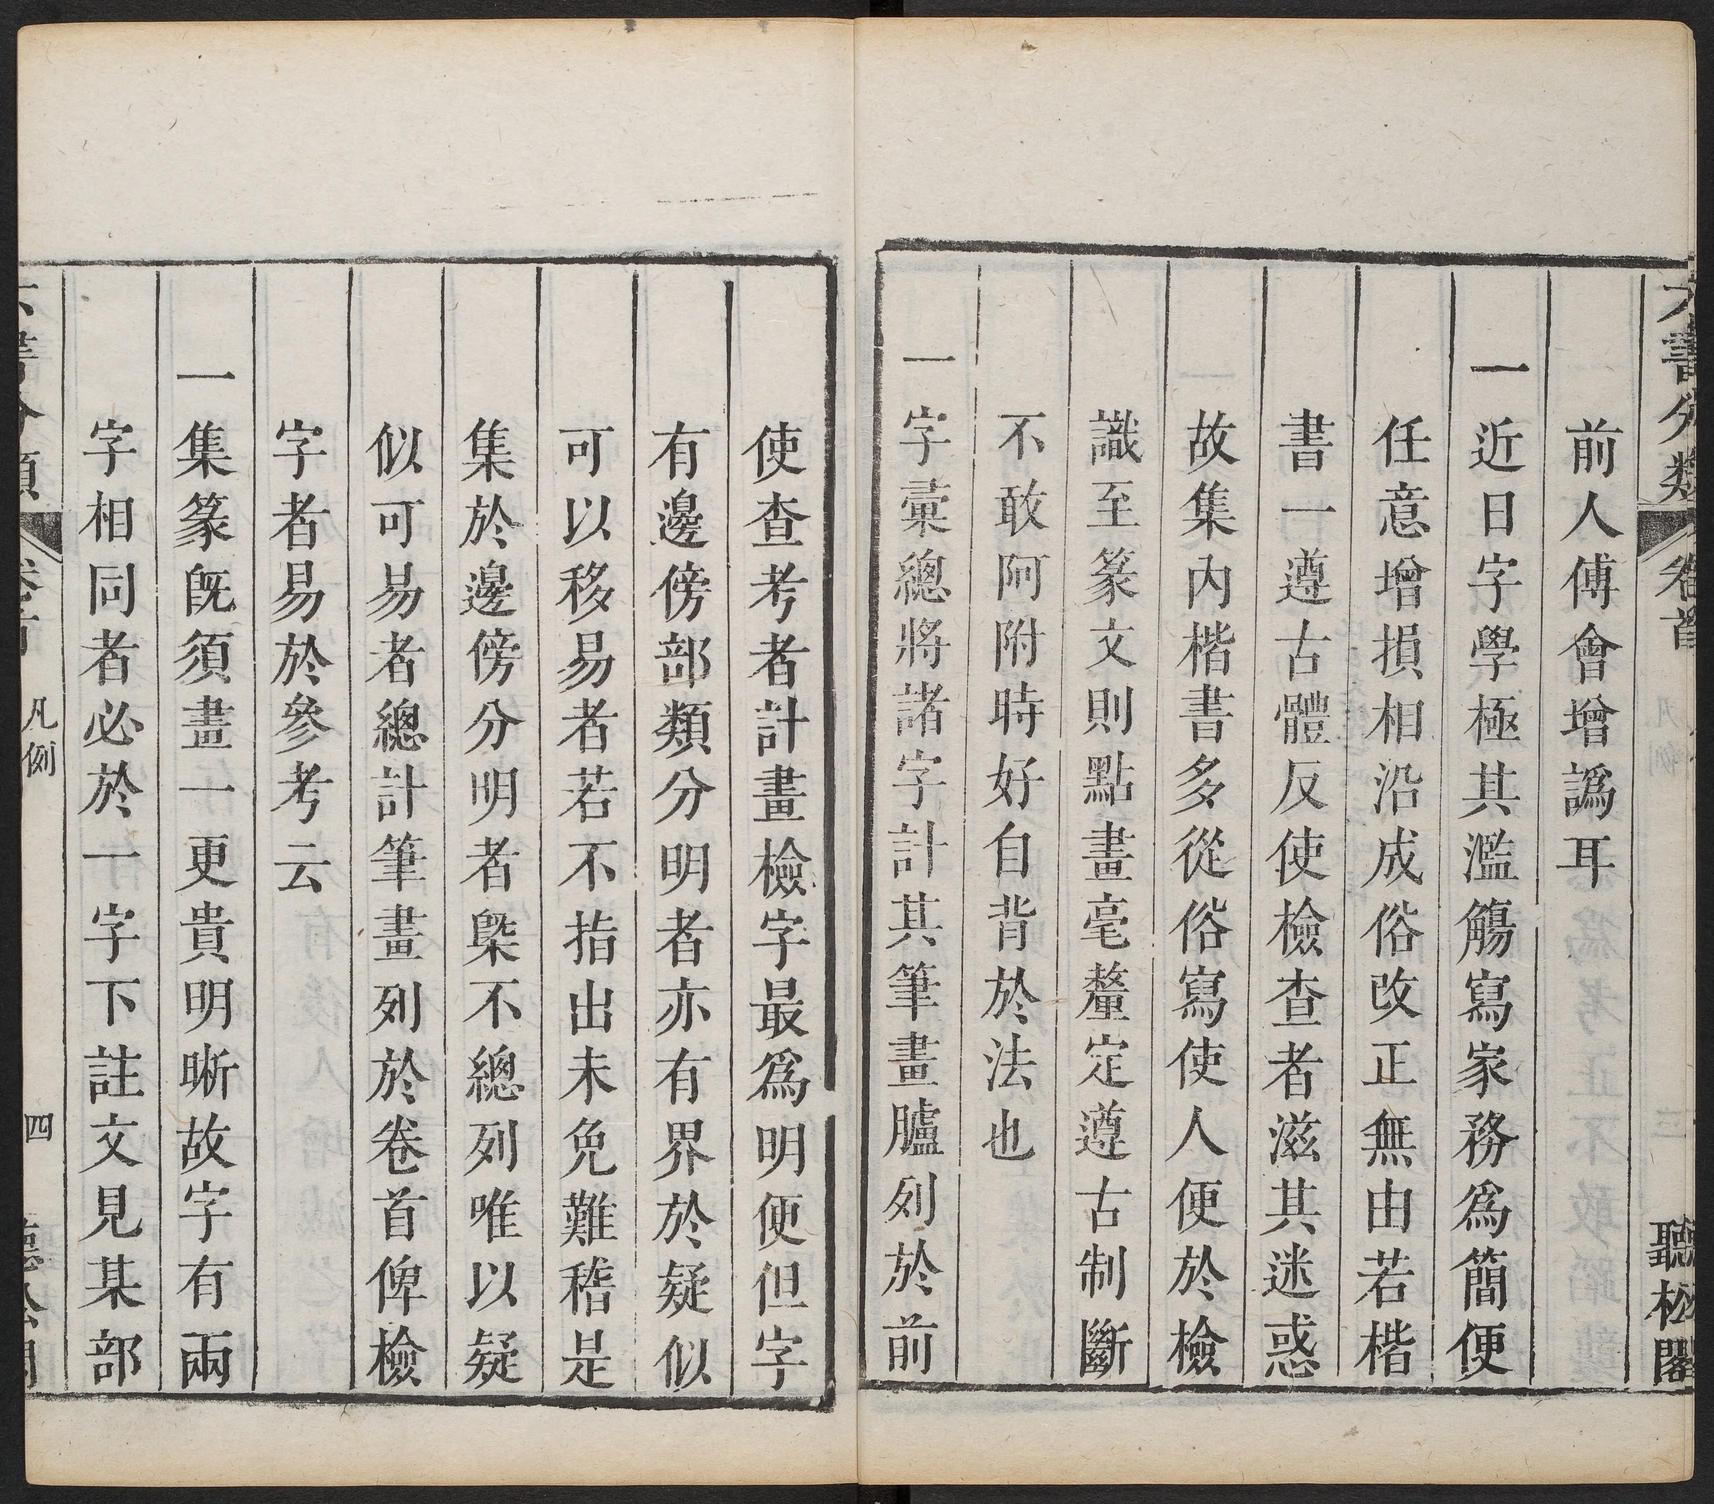 六書分類 卷首 聽松閣
前人傅會增譌耳
一近日字學極其濫觴寫家務爲簡便
任意增損相沿成俗改正無由若楷
書一遵古體反使檢查者滋其迷惑
故集內楷書多從俗寫使人便於檢
識至篆文則點畫毫釐定遵古制斷
不敢阿附時好自背於法也
一字彙總將諸字計其筆畫臚列於前
使查考者計畫檢字最爲明便但字
有邊傍部類分明者亦有界於疑似
可以移易者若不指出未免難稽是
集於邊傍分明者槩不總列唯以疑
似可易者總計筆畫列於卷首俾檢
字者易於參考云
一集篆旣須畫一更貴明晰故字有兩
字相同者必於一字下註文見某部
六書分類 卷首 凡例 四 聽松閣